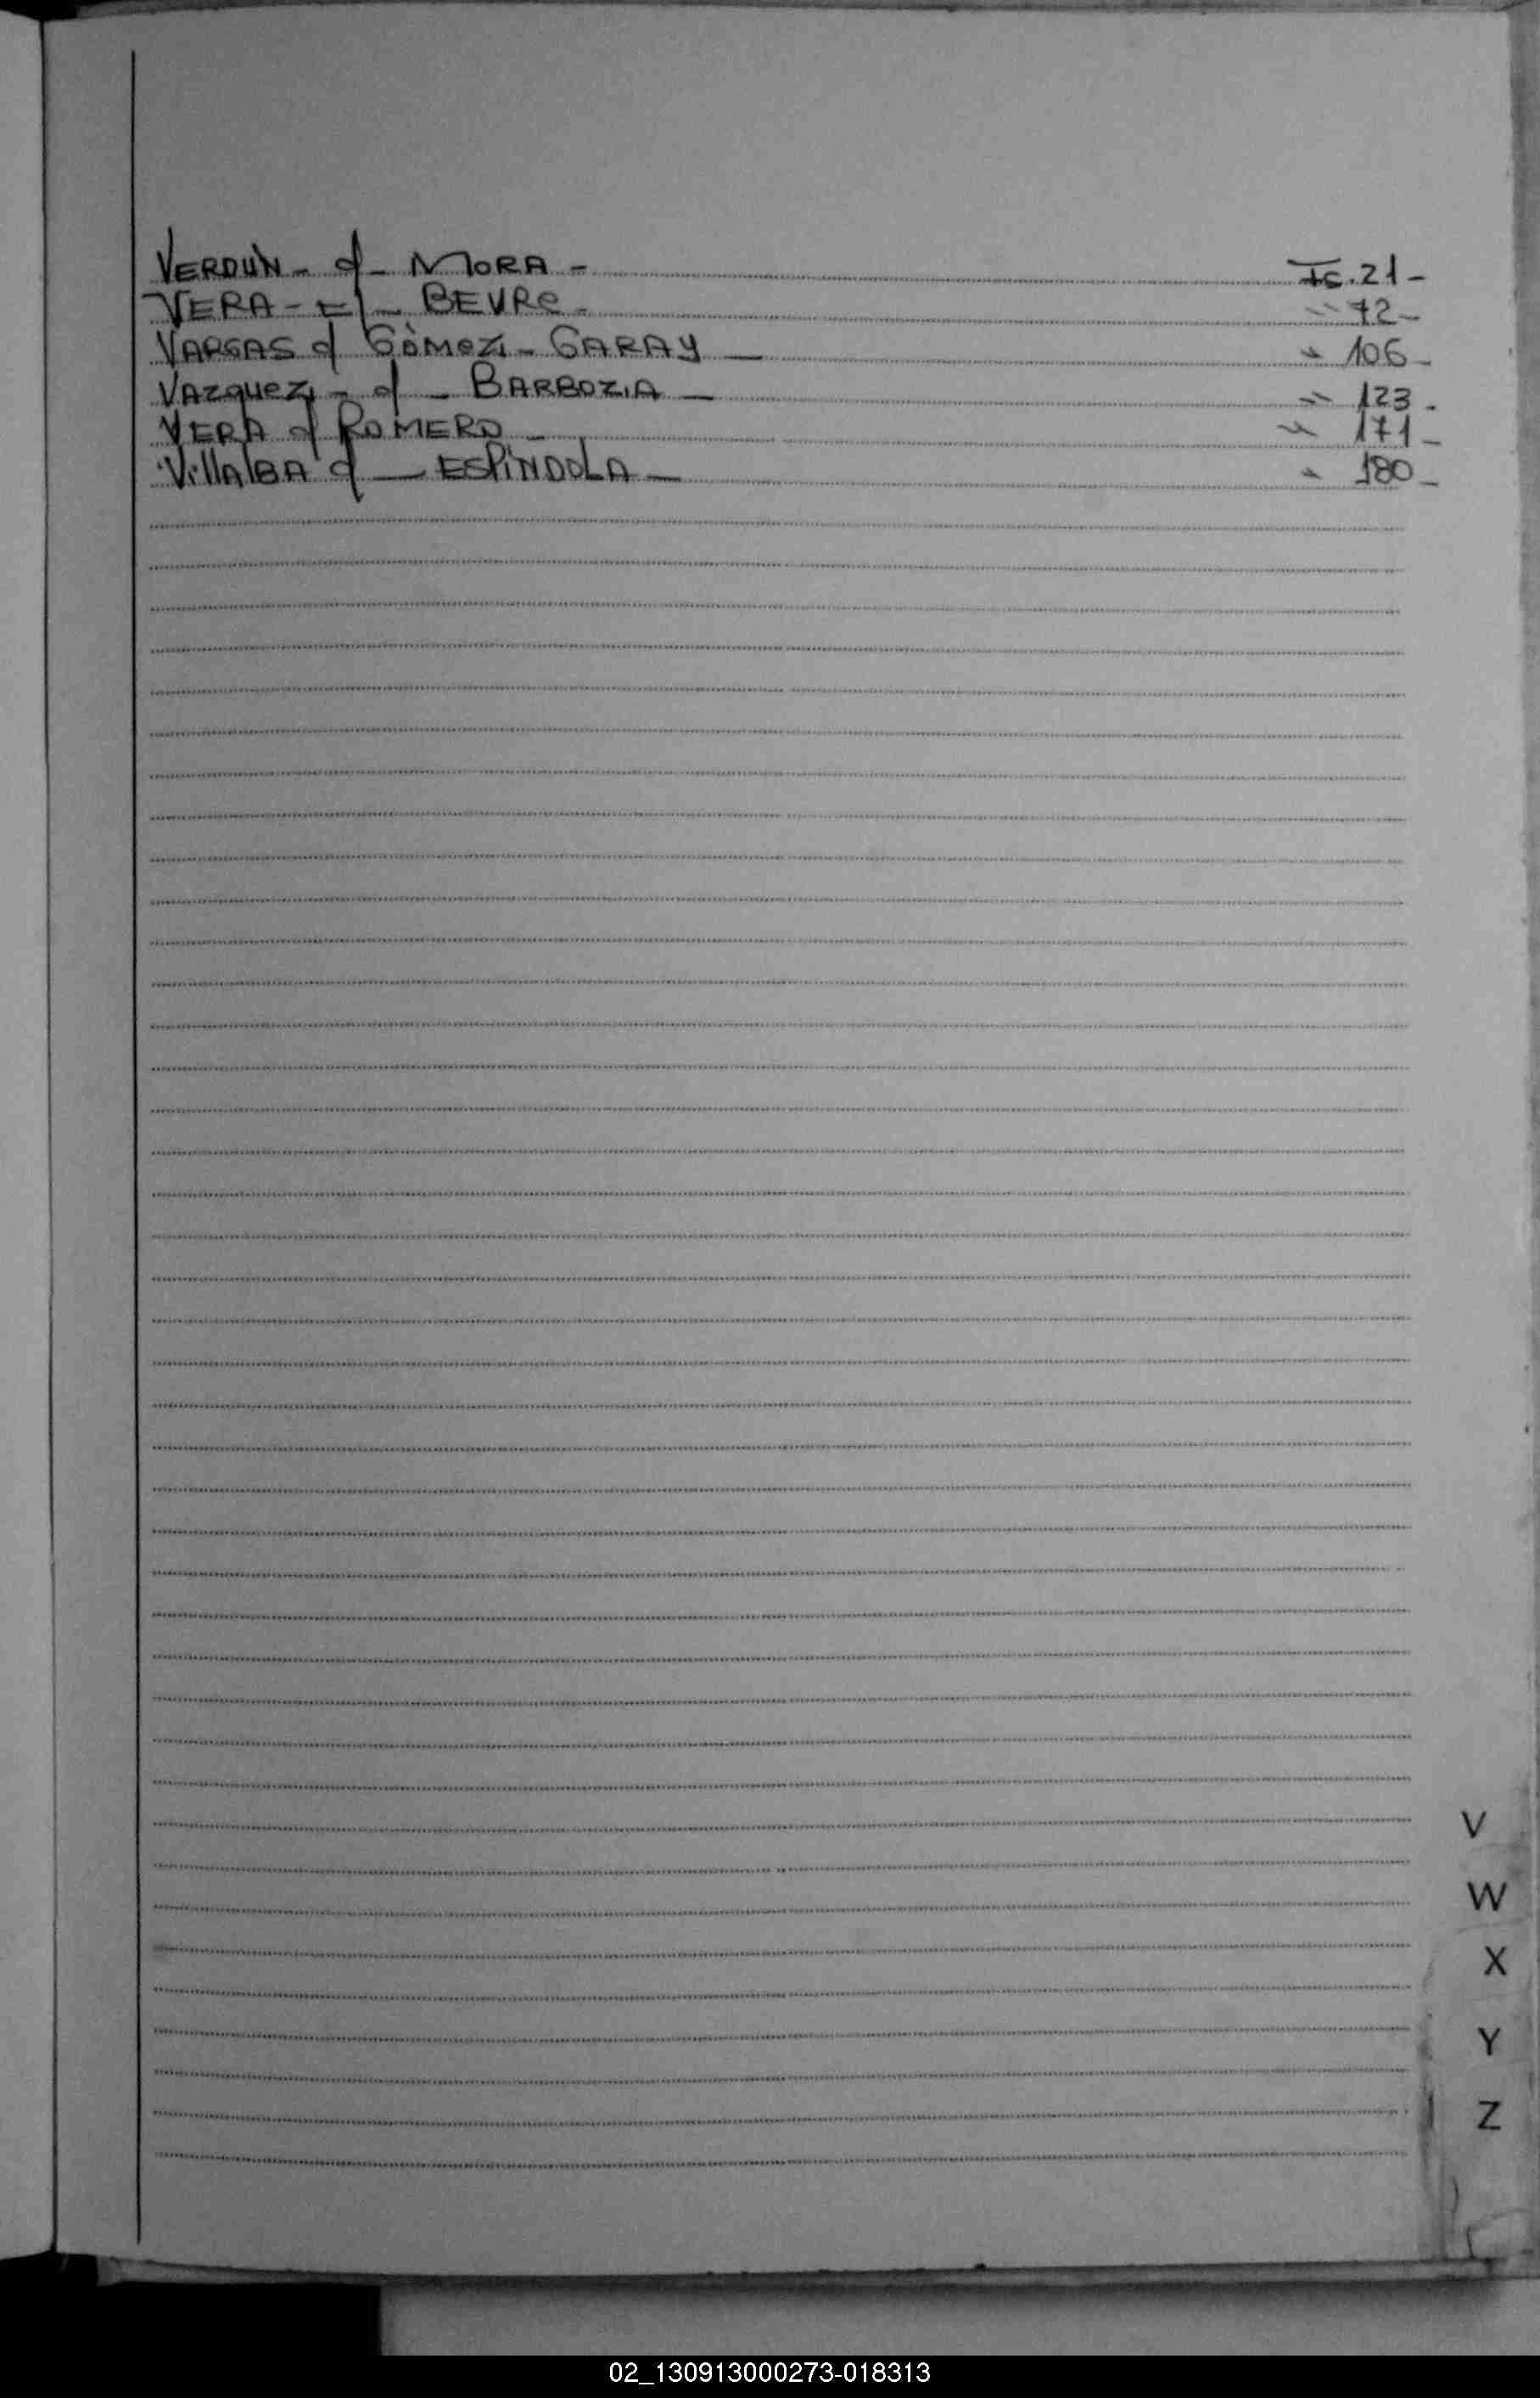 VERDÙN - c/ - MORA - Fs. 21 -
VERA - c/ - BEVRe - " 72 -
VARGAS c/ GÒMeZ - GARAY - " 106 -
VAZqueZ - c/ - BARBOZA - " 123 -
VERA c/ ROMERO - " 171 -
VillAlBA c/ - ESPiNDOLA - " 180 -
V
W
X
Y
Z
02_130913000273-018313